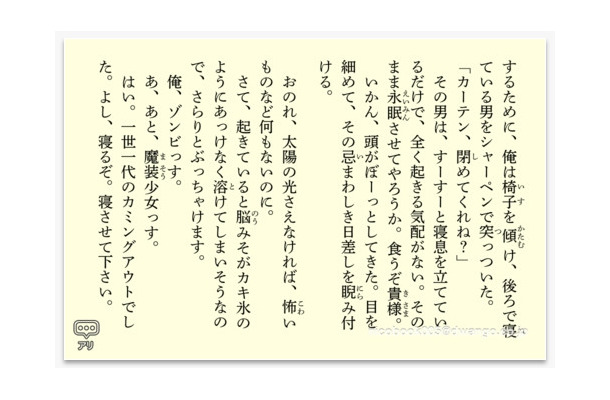 するために、俺は椅子を傾け、後ろで寝
ている男をシャーペンで突っついた。
「カーテン、閉めてくれね？」
その男は、すーすーと寝息を立ててい
るだけで、全く起きる気配がない。その
まま永眠させてやろうか。食うぞ貴様。
いかん、頭がぼーっとしてきた。目を
細めて、その忌まわしき日差しを睨み付
ける。
おのれ、太陽の光さえなければ、怖い
ものなど何もないのに。
さて、起きていると脳みそがカキ氷の
ようにあっけなく溶けてしまいそうなの
で、さらりとぶっちゃけます。
俺、ゾンビっす。
あ、あと、魔装少女っす。
はい。一世一代のカミングアウトでし
た。よし、寝るぞ。寝させて下さい。
アリ